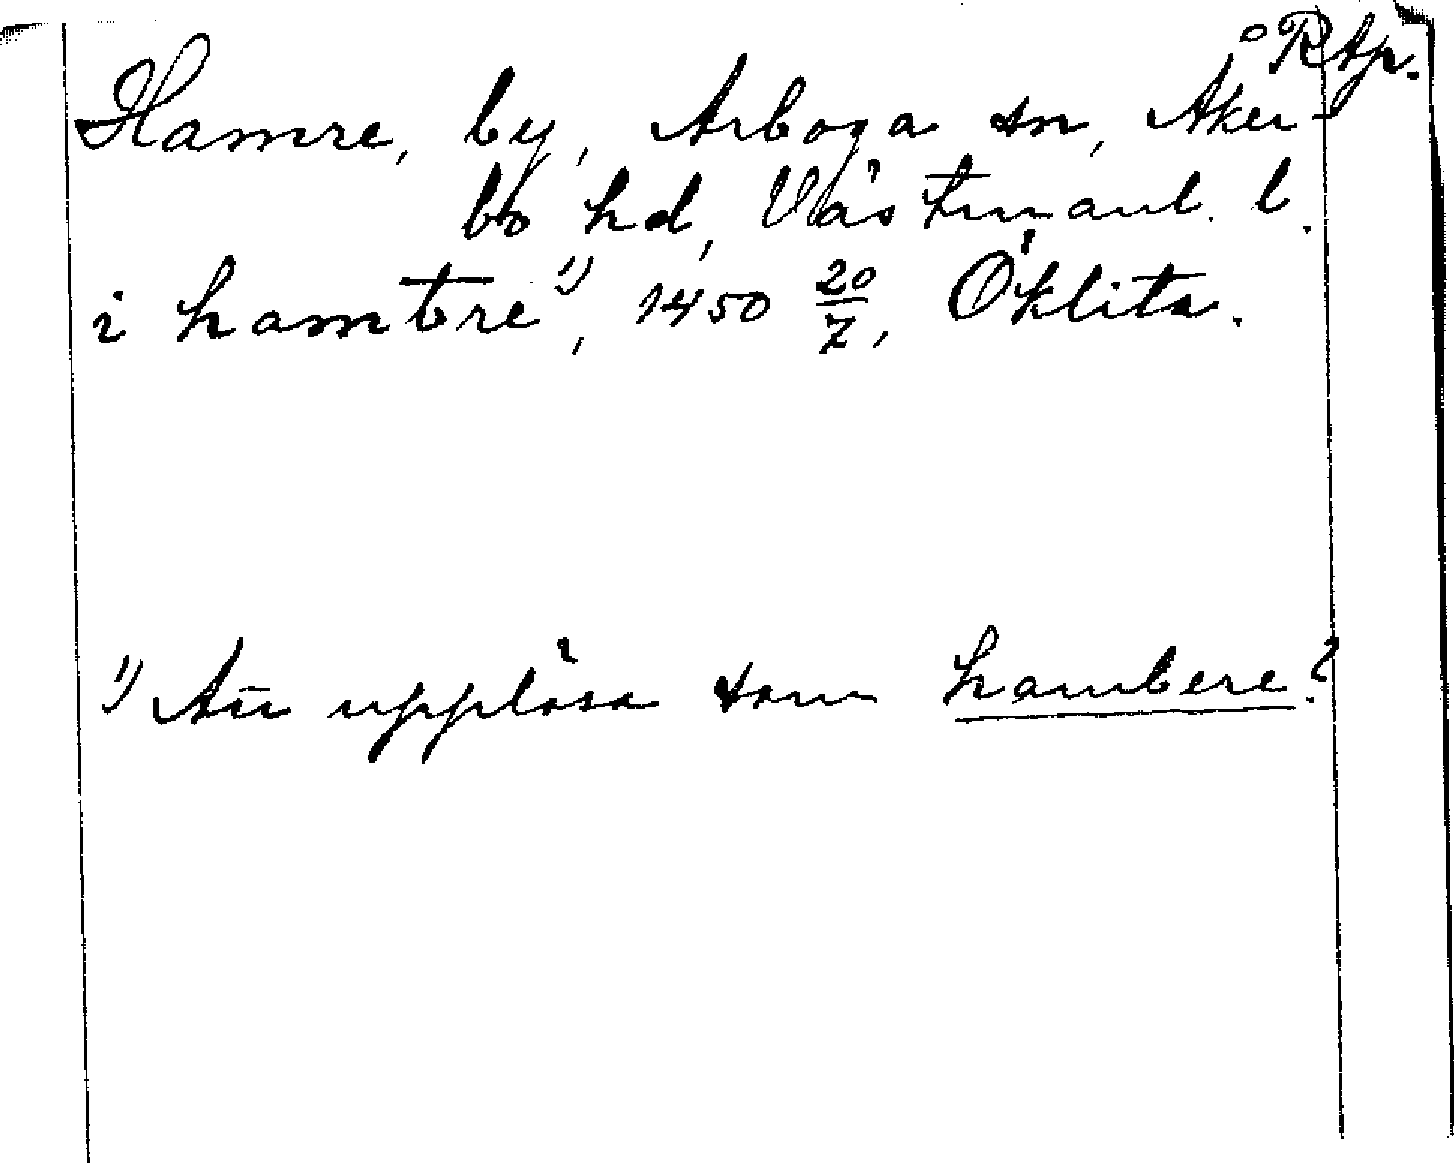 Rtp.
Hamre, by, Arboga sn, Åker-
bo hd, Västmanl. l.
i hambre¹⁾, 1450 20/7, Öklita.
¹⁾ Att upplösa som hambere?